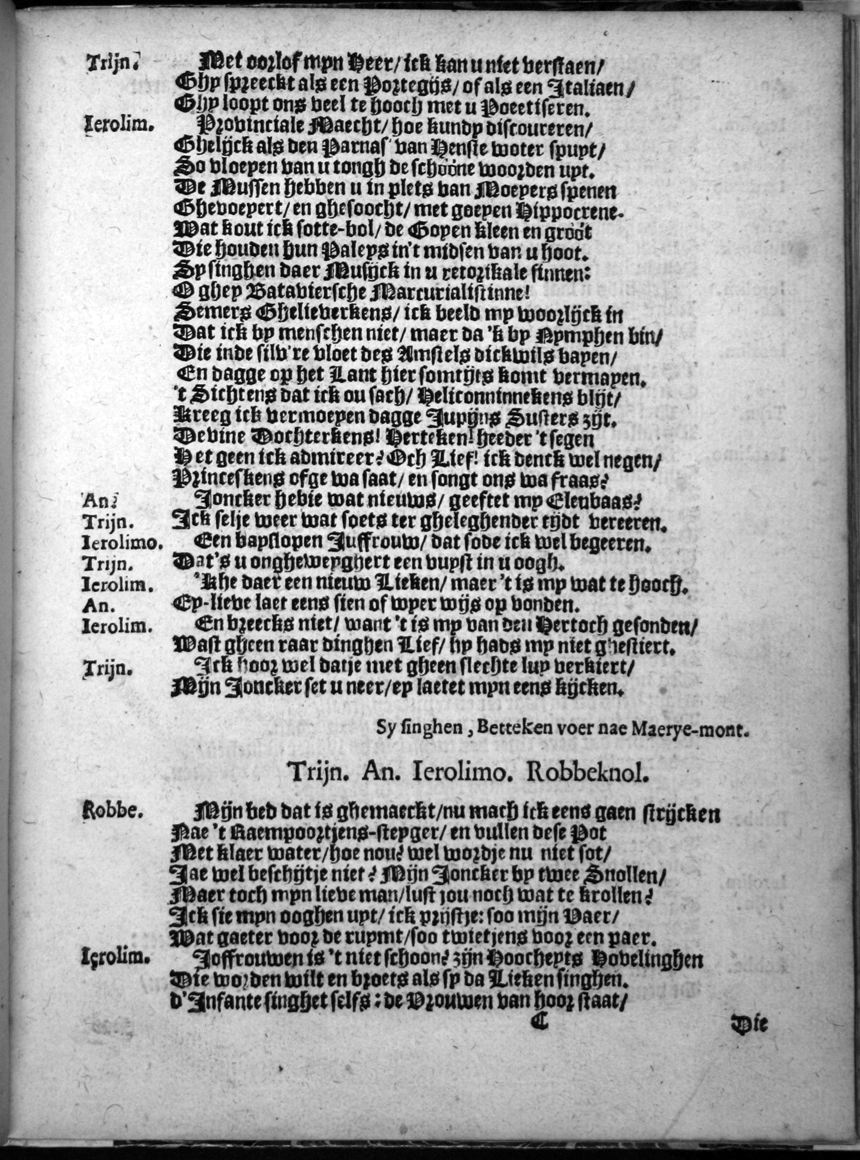 Trijn. Met oorlof myn Heer/ ick kan u niet verstaen/
Ghy spreeckt als een Portegijs/ of als een Italiaen/
Ghy loopt ons veel te hooch met u Poeetiseren.
Ierolim. Provinciale Maecht/ hoe kundy discoureren/
Ghelijck als den Parnas van Henste woter spuyt/
So vloeyen van u tongh de schoone woorden uyt.
De Mussen hebben u in plets van Moeyers spenen
Ghevoeyert/ en ghesoocht/ met goeyen Hippocrene.
Wat kout ick sotte-bol/ de Goyen kleen en groot
Die houden hun Paleys in't midsen van u hoot.
Sy singhen daer Musijck in u retorikale sinnen:
O ghey Bataviersche Marcurialistinne!
Semers Ghelieverkens/ ick beeld my woorlijck in
Dat ick by menschen niet/ maer da 'k by Nymphen bin/
Die inde silv're vloet des Amstels dickwils bayen/
En dagge op het Lant hier somtijts komt vermayen.
't Sichtens dat ick ou sach/ Heliconninnekens blijt/
Kreeg ick vermoeyen dagge Jupijns Susters zijt.
Devine Dochterkens! Herteken! heeder 't segen
Het geen ick admireer? Och Lief! ick denck wel negen/
Princeskens ofge wa saat/ en songt ons wa fraas?
An. Joncker hebje wat nieuws/ geeftet my Elenbaas?
Trijn. Ick selje weer wat soets ter gheleghender tijdt vereeren.
Ierolimo. Een bayslopen Juffrouw/ dat sode ick wel begeeren.
Trijn. Dat's u ongheweyghert een vuyst in u oogh.
Ierolim. 'Khe daer een nieuw Lieken/ maer 't is my wat te hooch.
An. Ey-lieve laet eens sien of wyer wijs op vonden.
Ierolim. En breecks niet/ want 't is my van den Hertoch gesonden/
Wast gheen raar dinghen Lief/ hy hads my niet ghestiert.
Trijn. Ick hoor wel datje met gheen slechte luy verkiert/
Mijn Joncker set u neer/ ey laetet myn eens kijcken.
Sy singhen, Betteken voer nae Maerye-mont.
Trijn. An. Ierolimo. Robbeknol.
Robbe. Mijn bed dat is ghemaeckt/nu mach ick eens gaen strijcken
Nae 't Raempoortjens-steyger/ en vullen dese Pot
Met klaer water/hoe nou? wel wordje nu niet sot/
Jae wel beschijtje niet? Mijn Joncker by twee Snollen/
Maer toch myn lieve man/lust jou noch wat te krollen?
Ick sie myn ooghen uyt/ ick prijstje: soo mijn Vaer/
Wat gaeter voor de ruymt/soo twietjens voor een paer.
Ierolim. Joffrouwen is 't niet schoon? zijn Hoocheyts Hovelinghen
Die worden wilt en broets als sy da Lieken singhen.
d'Infante singhet selfs: de Vrouwen van hoor staat/
C Die